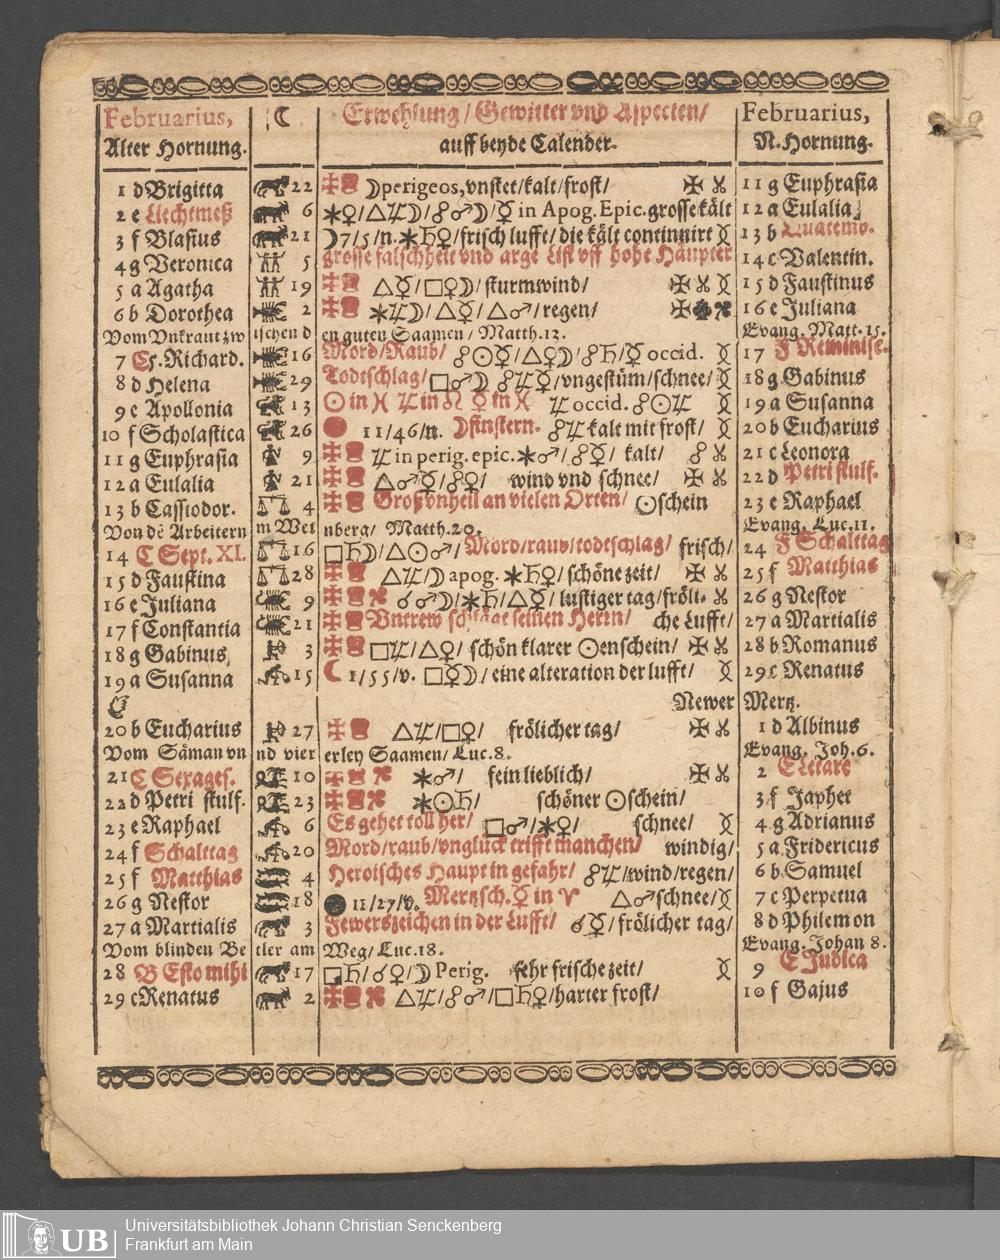 Februarius, ☾ Erwehlung / Gewitter vnd Aspecten / Februarius,
Alter Hornung. auff beyde Calender. N. Hornung.
1 d Brigitta 22 ☽ perigeos, vnstet / kalt / frost / 11 g Euphrasia
2 e Liechtmeß 6 ✶♀ / △♃☽ / ☍♂☽ / ☿ in Apog. Epic. grosse kält 12 a Eulalia
3 f Blasius 21 ☽ 7 / 5 / n. ✶♄♀ / frisch lufft / die kält continuirt 13 b Quatemb.
4 g Veronica 5 grosse falschheit vnd arge List vff hohe Häupter 14 c Valentin.
5 a Agatha 19 △☿ / □♀☽ / sturmwind / 15 d Faustinus
6 b Dorothea 2 ✶♃☽ / △☿ / △♂ / regen / 16 e Juliana
Vom Vnkraut zwischen den guten Saamen / Matth. 13. Evang. Matt. 15.
7 C 5. Richard. 16 Mord / Raub / ☍☉☿ / △♀☽ / ☍♄ / ☿ occid. 17 F Reminisc.
8 d Helena 29 Todtschlag / □♂☽ ☍♃☿ / vngestüm / schnee / 18 g Gabinus
9 e Apollonia 13 ☉ in ♓ ♃ in ♌ ☿ in ♓ ♃ occid. ☍☉♃ 19 a Susanna
10 f Scholastica 26 11 / 46 / n. ☽finstern. ☍♃ kalt mit frost / 20 b Eucharius
11 g Euphrasia 9 ♃ in perig. epic. ✶♂ / ☍☿ / kalt / 21 c Leonora
12 a Eulalia 21 △♂☿ / ☍♀ / wind vnd schnee / 22 d Petri stulf.
13 b Cassiodor. 4 Groß vnheil an vielen Orten / ☉schein 23 e Raphael
Von dē Arbeitern im Weinberg / Matth. 20. Evang. Luc. 11.
14 C Sept. XI. 16 □♄☽ / △☉♂ / Mord / raub / todtschlag / frisch / 24 F Schalttag
15 d Faustina 28 △♃ / ☽ apog. ✶♄♀ / schöne zeit / 25 f Matthias
16 e Juliana 9 ☌♂☽ / ✶♄ / △☿ / lustiger tag / fröli- 26 g Nestor
17 f Constantia 21 Vntrew schlägt seinen Herrn / che Lufft / 27 a Martialis
18 g Gabinus 3 □♃ / △♀ / schön klarer ☉enschein / 28 b Romanus
19 a Susanna 15 ☾ 1 / 55 / v. □☿☽ / eine alteration der lufft / 29 c Renatus
Newer Mertz.
20 b Eucharius 27 △♃ / □♀ / frölicher tag / 1 d Albinus
Vom Säman vnnd viererley Saamen / Luc. 8. Evang. Joh. 6.
21 C Sexages. 10 ✶♂ / fein lieblich / 2 E Letare
22 d Petri stulf. 23 ✶☉♄ / schöner ☉schein / 3 f Japhet
23 e Raphael 6 Es gehet toll her / □♂ / ✶♀ / schnee / 4 g Adrianus
24 f Schalttag 20 Mord / raub / vnglück trifft manchen / windig / 5 a Fridericus
25 f Matthias 4 Heroisches Haupt in gefahr / ☍♃ / wind / regen / 6 b Samuel
26 g Nestor 18 ● 11 / 27 / v. Mertzsch. ☿ in ♈ △♂ schnee / 7 c Perpetua
27 a Martialis 3 Fewerszeichen in der Lufft / ☌☿ / frölicher tag / 8 d Philemon
Vom blinden Betler am Weg / Luc. 18. Evang. Johan 8.
28 B Esto mihi 17 □♄ / ☌♀ / ☽ Perig. sehr frische zeit / 9 E Judica
29 c Renatus 2 △♃ / ☍♂ / □♄♀ / harter frost / 10 f Gajus
UB Universitätsbibliothek Johann Christian Senckenberg
Frankfurt am Main